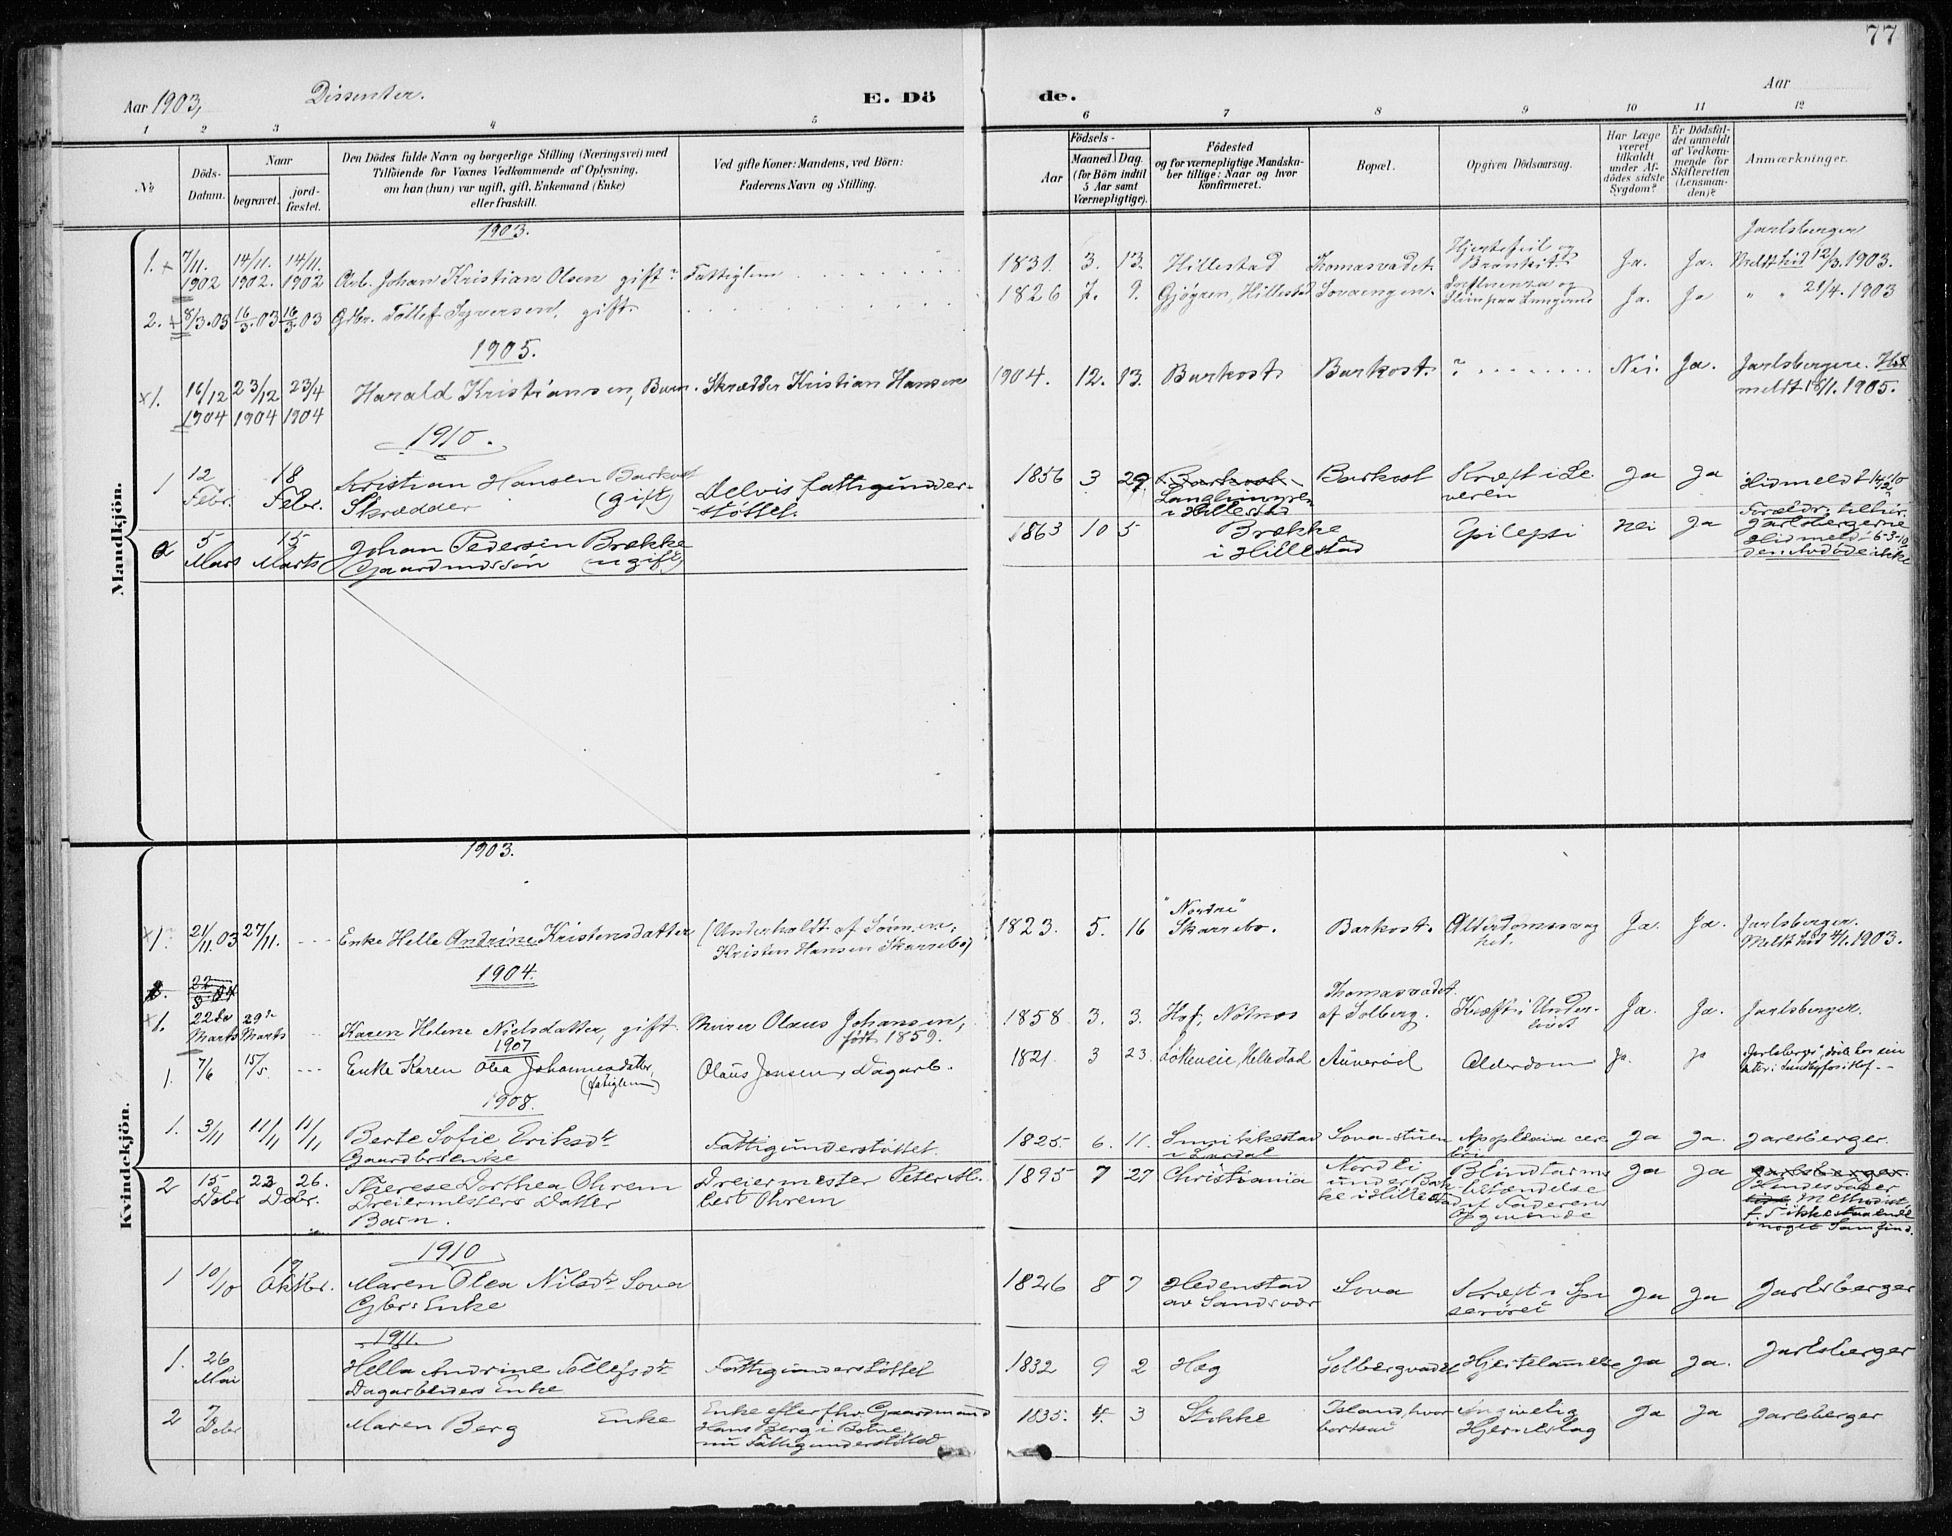 77
Aar 1903,
Dissenter.
E. Dö
de.
Aar
1 2 3 4 5 6 7 8 9 10 11 12
No
Döds-
Datum.
Naar
begravet.
jord-
fæstet.
Den Dödes fulde Navn og borgerlige Stilling (Næringsvei) med
Tilföiende for Voxnes Vedkommende af Oplysning,
om han (hun) var ugift, gift, Enkemand (Enke)
eller fraskilt.
Ved gifte Koner: Mandens, ved Börn:
Faderens Navn og Stilling.
Födsels-
Aar
Maaned Dag.
(for Börn indtil
5 Aar samt
Værnepligtige).
Födested
og for værnepligtige Mandska-
ber tillige: Naar og hvor
konfirmeret.
Bopæl.
Opgiven Dödsaarsag.
Har Læge
været
tilkaldt
under Af-
dödes sidste
Sygdom?
Er Dödsfal-
det anmeldt
af Vedkom-
mende for
Skifteretten
(Lensman-
den)?
Anmærkninger.
Mandkjön.
1903.
1. + 7/11. 1902 14/11. 1902. 14/11. 1902 Arb. Johan Kristian Olsen gift. Fattiglem 1831. 3. 13. Hillestad Thomasvadet. Hjertefeil og Bronkit. Ja. Ja. Jarlsberger Meldt hid 12/3. 1903.
2. + 8/3.03 16/3.03 16/3.03 Gdbr. Tollef Syversen, gift. 1826 7. 9. Gjögren, Hillestad Sovaengen. Influenza og Slim paa Lungerne Ja. Ja " " 21/4. 1903
1905.
x1. 16/12 1904 23/12 1904 23/4 1904 Harald Kristiansen, Barn. Skrædder Kristian Hansen 1904. 12. 13. Barkost. Barkost. ? Nei. Ja. Jarlsbergere. Hid meldt 18/1. 1905.
1910.
1 12 Febr. 18 Febr. Kristian Hansen Barkost
Skrædder (gift) Delvis fattigunder-
støttet. 1856 3 29 Barkost
i Hillestad Barkost Kræft i Le-
veren Ja Ja Hidmeldt 14/2 10
2 5 Mars 15 Marts Johan Pedersen Brække
Gaardmdssön (ugift) 1863 10 5 Brække
i Hillestad Epilepsi Nei Ja Forældr. tilhör.
Jarlsbergerne
Hidmeldt 6-3-10
den avdøde ikke
Kvindekjön.
1903.
x1. 21/11 03 27/11. Enke Helle Andrine Kristensdatter (Underholdt af Sønnen,
Kristen Hansen Skarrebo) 1823. 5. 16 "Nordre"
Skarrebo. Barkost. Alderdomssvag
het. Ja. Ja. Jarlsberger.
Meldt hid 4/1. 1903.
1904.
2. 22/3 04
x1. 22de Marts 29de Marts Karen Helene Nielsdatter, gift Murer Olaus Johansen,
født 1859. 1858 3. 3. Hof, Nötnæs Thomasvadet
af Solberg. Kræft i Under-
livet Ja. Ja. Jarlsberger.
1907
1. 7/6 15/5 Enke Karen Olea Johannesdatter,
(fatiglem) Olaus Jensen, Dagarb. 1821. 3 23. Løkeneie, Hillestad Auverød Alderdom Ja. Ja
1908.
1. 3/11 11/11 11/11 Berte Sofie Eriksdtr
Gaardbrs enke Fattigunderstøttet. 1825. 6. 11. Smrikkestad
i Lardal Sova-stuen Apoplexia cere
bri Ja Ja. Jarlsberger.
2 15 Debr 23 Debr. 26. Therese Dorthea Ohrem
Dreiermesters Datter
Barn. Dreiermester Peter Al-
bert Ohrem 1895 7 27 Christiania Nordli
under Bak-
ke i Hillestad Blindtarms
betændelse
inf Faderens
Opgivende Ja Ja Jarlsberger.
Hendes Fader
Methodist,
f. T ikke staaende
i noget Samfund.
1910
1 10/10 19 Oktbr. Maren Olea Nilsdtr Sova
Gbrs Enke 1826 8 7 Hedenstad
av Sandsvær Sova Kræft i Spi
serøret Ja Ja Jarlsberger
1911.
1. 26 Mai Hella Andrine Tollefsdtr
Dagarbeiders Enke Fattigunderstøttet 1832 9 2 Hæg Solbergvadet Hjertelammelse Ja Ja. Jarlsberger
2 7 Debr Maren Berg Enke Enke efter fhv. Gaardmand
Hans Berg i Botne
nu Fattigunderstøttet 1835. 4. 3 Stokke Island, hvor
bortsat Angivelig
Hjerneslag Ja Ja Jarlsberger